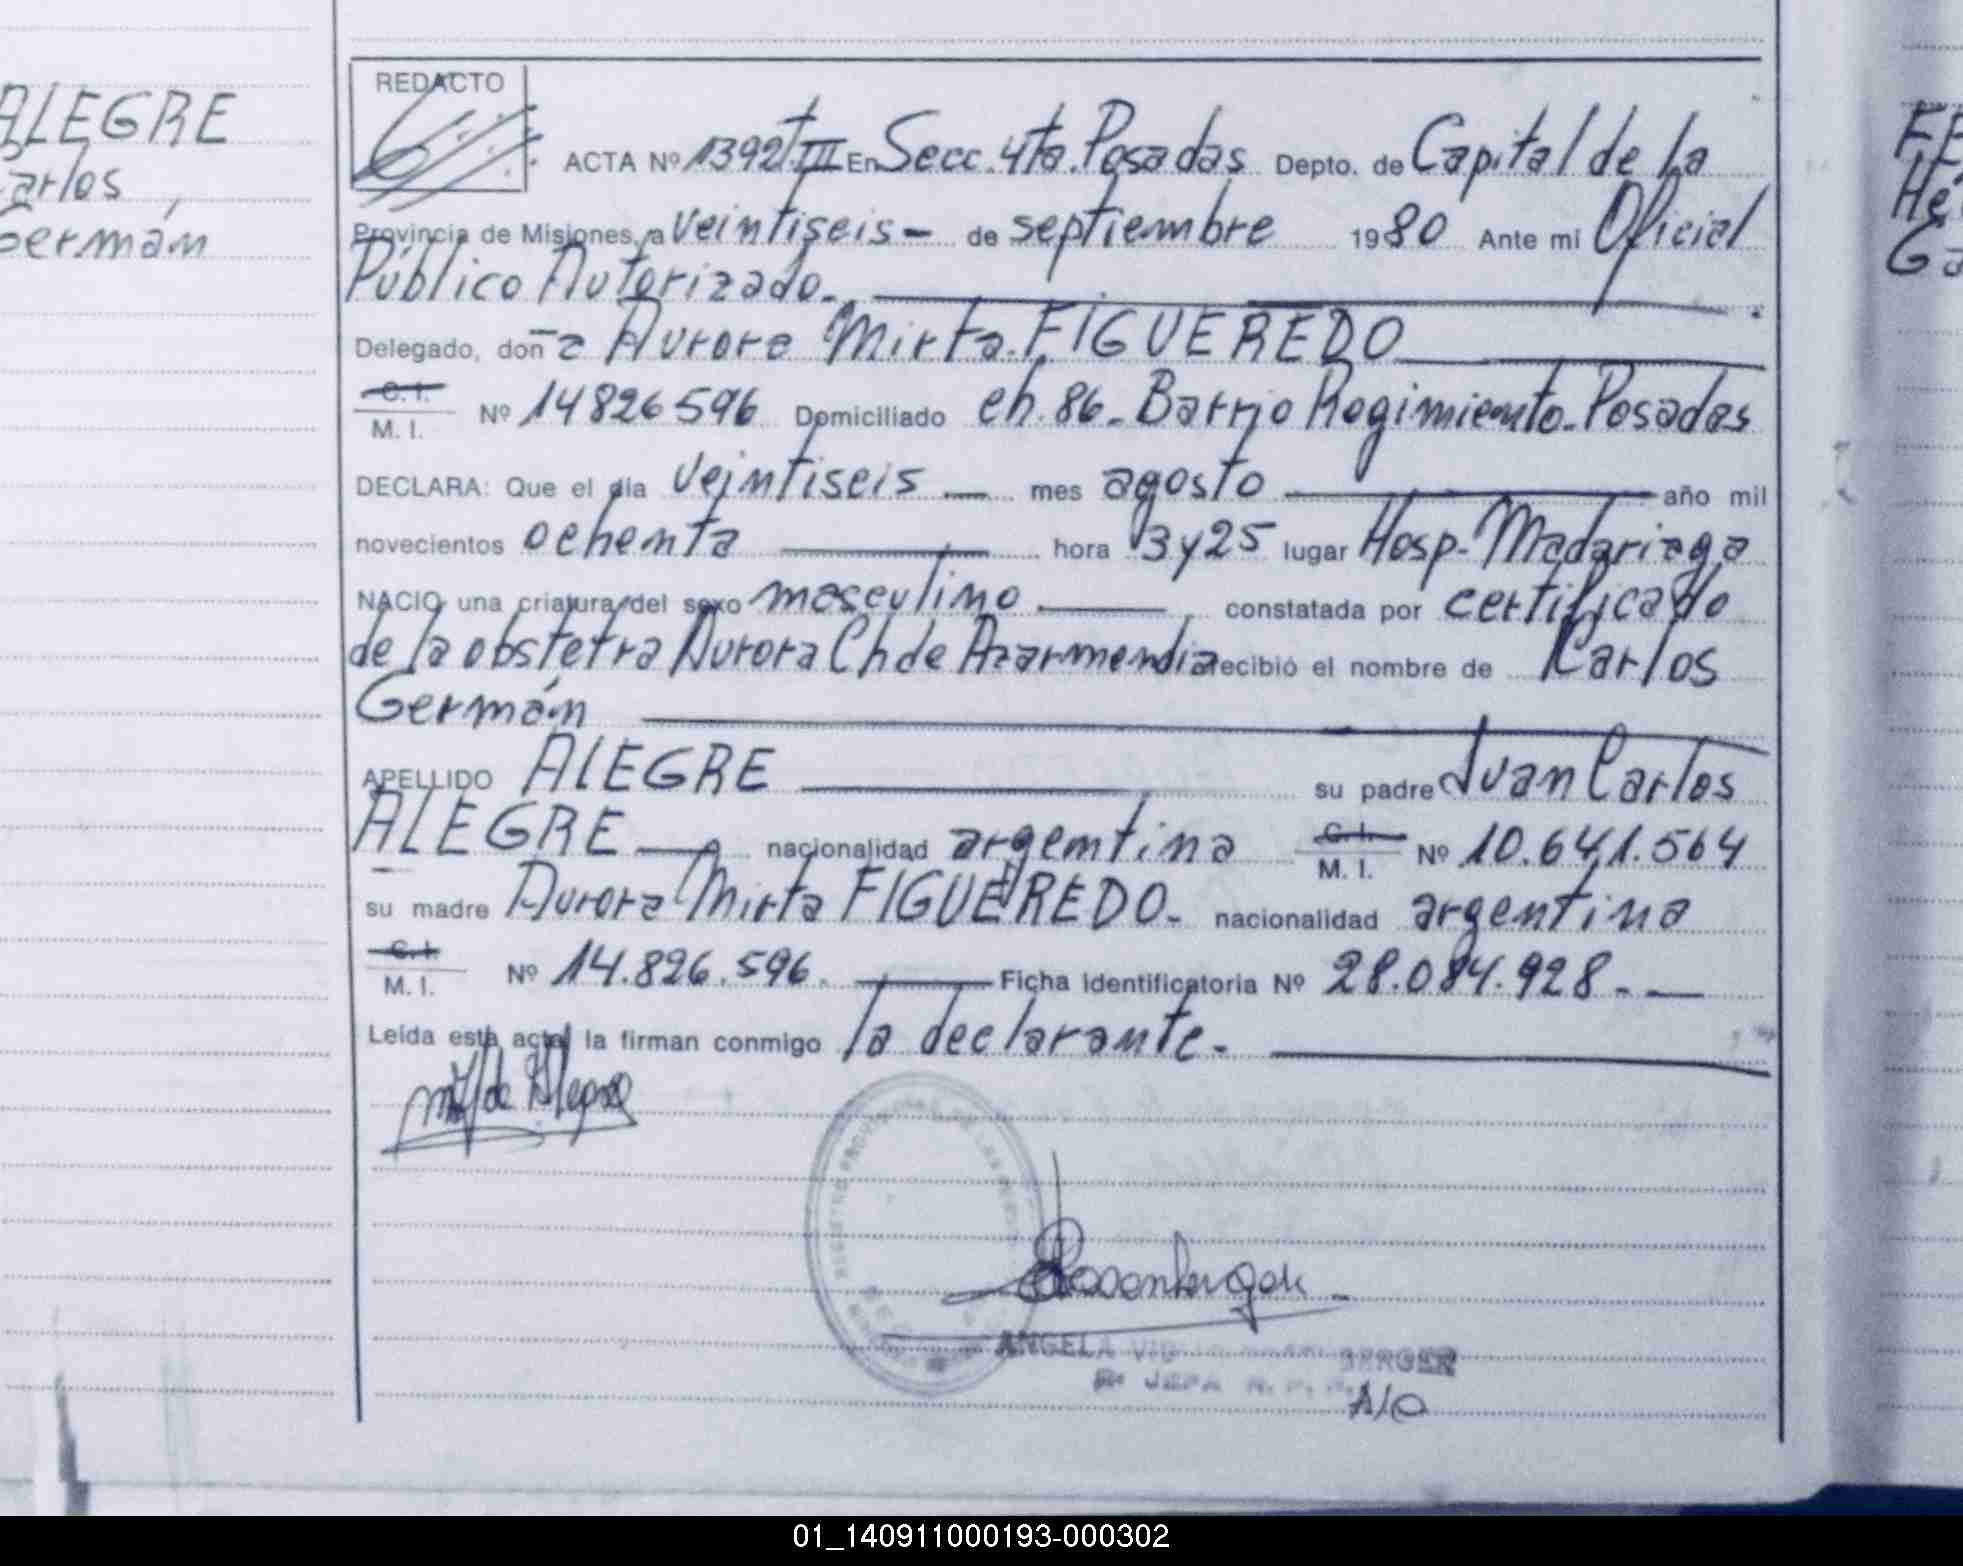 ALEGRE
Carlos
Germán
REDACTO
ACTA Nº 1392 T. III En Secc. 4ta. Posadas Depto. de Capital de la
Provincia de Misiones, a veintiseis - de septiembre 1980 Ante mi Oficial
Público Autorizado.
Delegado, doña Aurora Mirta FIGUEREDO
C. I.
M. I. Nº 14826596 Domiciliado ch. 86. Barrio Regimiento. Posadas
DECLARA: Que el dia veintiseis mes agosto año mil
novecientos ochenta hora 3 y 25 lugar Hosp. Madariaga
NACIO una criatura del sexo masculino constatada por certificado
de la obstetra Aurora Ch de Azarmendia recibió el nombre de Carlos
Germán
APELLIDO ALEGRE su padre Juan Carlos
ALEGRE nacionalidad argentina C. I. M. I. Nº 10.641.564
su madre Aurora Mirta FIGUEREDO. nacionalidad argentina
C. I.
M. I. Nº 14.826.596. Ficha Identificatoria Nº 28.084.928.-
Leída esta acta, la firman conmigo la declarante.-
de Alegre
ANGELA BERGER
A/C
FE
Hé
Ga
01_140911000193-000302